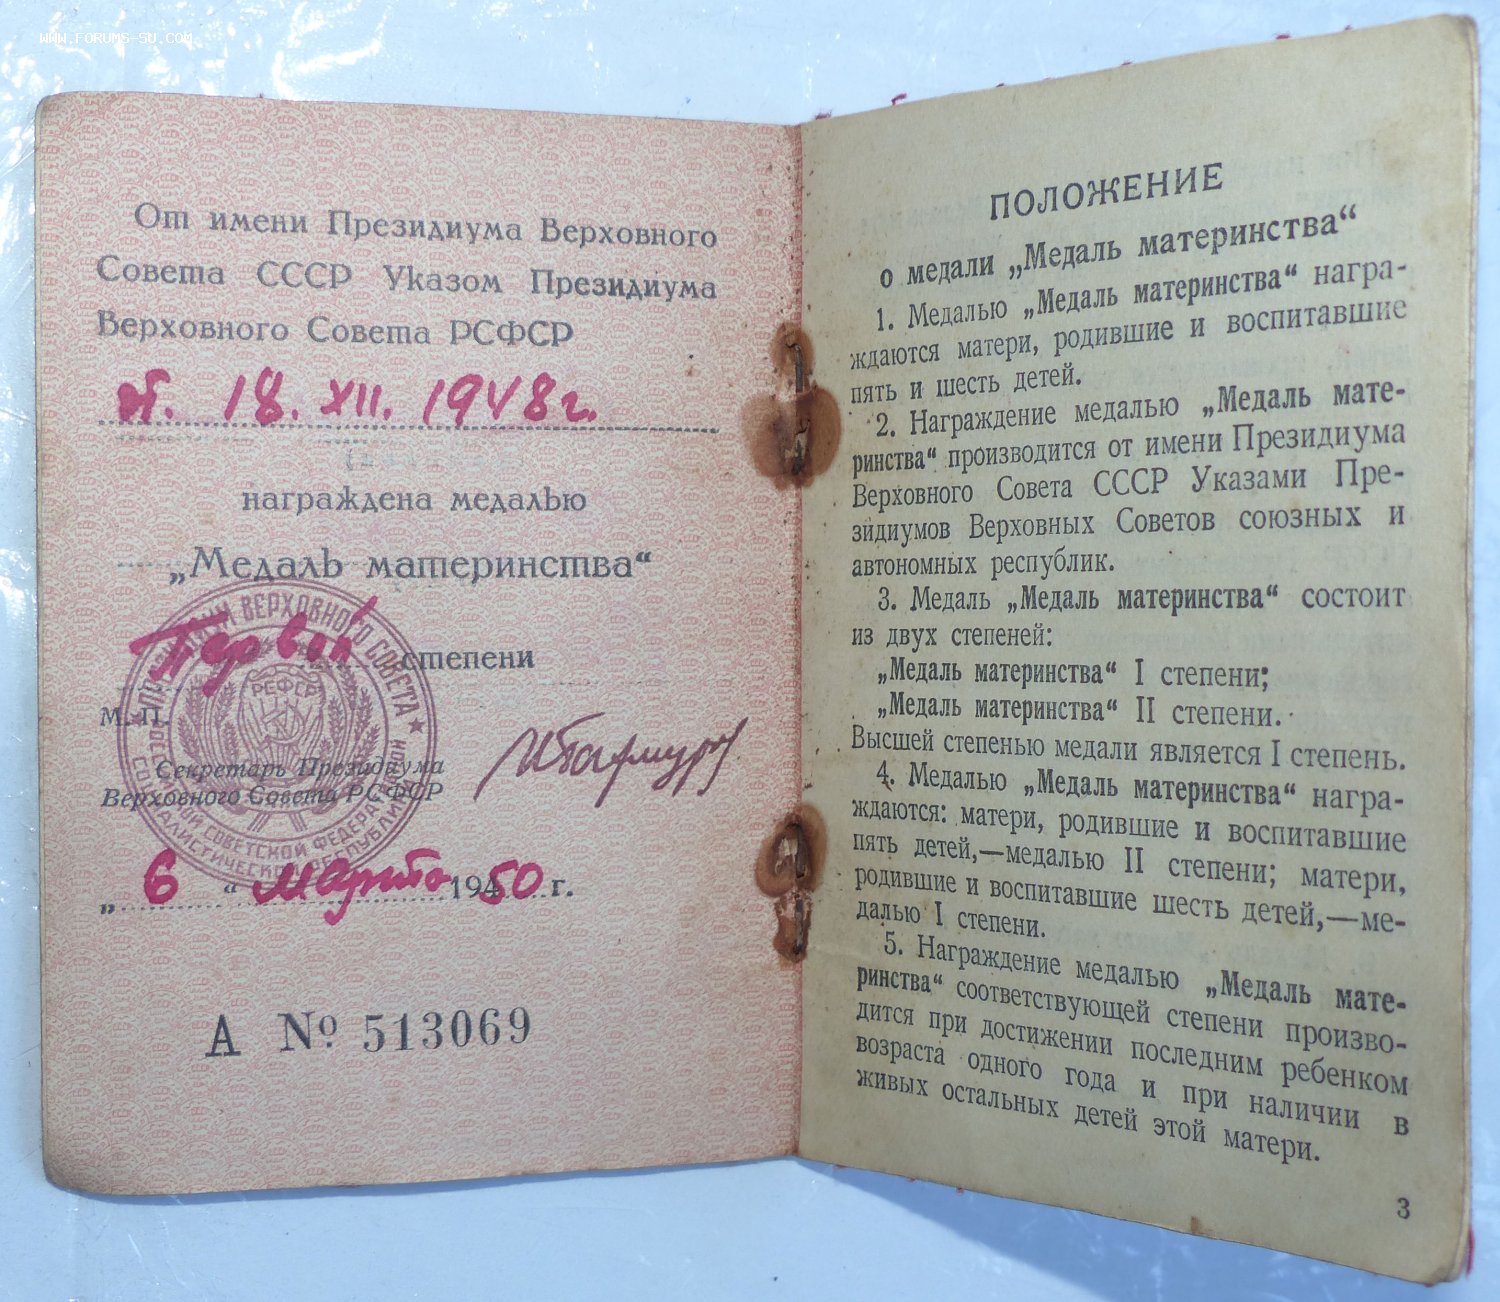 WWW.FORUMS-SU.COM
От имени Президиума Верховного
Совета СССР Указом Президиума
Верховного Совета РСФСР
от. 18. XII. 1948 г.
награждена медалью
„Медаль материнства“
Первой степени
М. П.
РСФСР
Секретарь Президиума
Верховного Совета РСФСР
„ 6 “ Марта 1950 г.
А № 513069
ПОЛОЖЕНИЕ
о медали „Медаль материнства“
1. Медалью „Медаль материнства“ награ-
ждаются матери, родившие и воспитавшие
пять и шесть детей.
2. Награждение медалью „Медаль мате-
ринства“ производится от имени Президиума
Верховного Совета СССР Указами Пре-
зидиумов Верховных Советов союзных и
автономных республик.
3. Медаль „Медаль материнства“ состоит
из двух степеней:
„Медаль материнства“ I степени;
„Медаль материнства“ II степени.
Высшей степенью медали является I степень.
4. Медалью „Медаль материнства“ награ-
ждаются: матери, родившие и воспитавшие
пять детей,—медалью II степени; матери,
родившие и воспитавшие шесть детей,—ме-
далью I степени.
5. Награждение медалью „Медаль мате-
ринства“ соответствующей степени произво-
дится при достижении последним ребенком
возраста одного года и при наличии в
живых остальных детей этой матери.
3